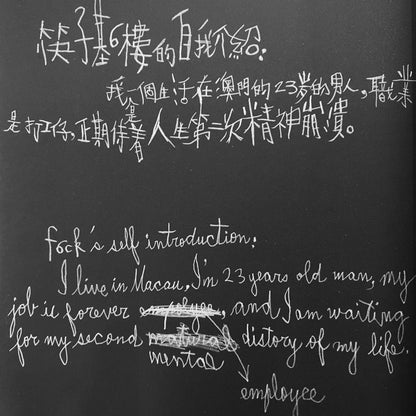 筷子基6樓的自我介紹:
我是一個生活在澳門的23歲的男人,職業
是打工仔,正期待着人生第二次精神崩潰。
fock's self introduction:
I live in Macau, I'm 23 years old man, my
job is forever , and I am waiting
for my second distory of my life.
mental
employee